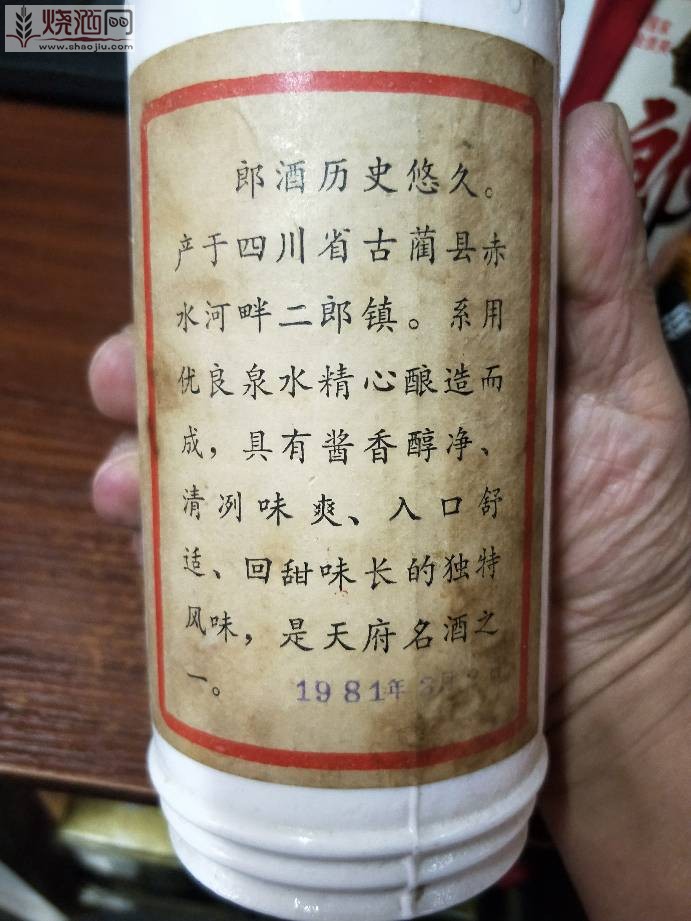 烧酒网
www.shaojiu.com
郎酒历史悠久。
产于四川省古蔺县赤
水河畔二郎镇。系用
优良泉水精心酿造而
成，具有酱香醇净、
清冽味爽、入口舒
适、回甜味长的独特
风味，是天府名酒之
一。
1981年3月